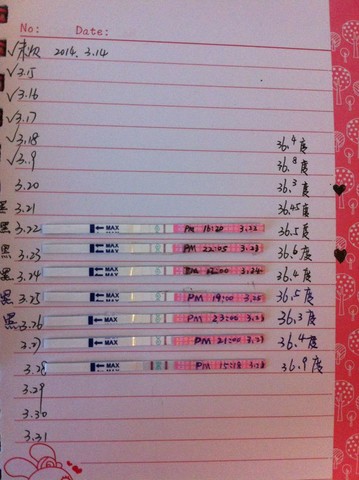 No: Date:
√末次 2014. 3.14
√3.15
√3.16
√3.17
√3.18 36.4度
√3.9 36.8度
3.20 36.3度
黑 3.21 36.45度
黑 3.22 ← MAX PM 16:20 3.22 36.5度
黑 3.23 ← MAX PM 22:05 3.23 36.6度
黑 3.24 ← MAX PM 3.24 36.4度
黑 3.25 ← MAX PM 19:00 3.25 36.5度
黑 3.26 ← MAX PM 23:00 36.3度
3.27 ← MAX PM 21:00 3.27 36.4度
3.28 ← MAX PM 15:18 3.28 36.9度
3.29
3.30
3.31